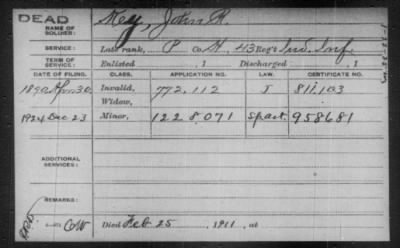 DEAD
NAME OF SOLDIER: Key, John R.
SERVICE: Late rank, P Co. H, 43 Reg't Ind. Inf.
TERM OF SERVICE: Enlisted , 1 Discharged , 1
DATE OF FILING. CLASS. APPLICATION NO. LAW. CERTIFICATE NO.
1890 Apr 30 Invalid, 772.112 J 811.103
Widow,
1924 Dec 23 Minor, 1228.071 Sp act. 958681
ADDITIONAL SERVICES:
REMARKS:
COW Died Feb 25 1911, at